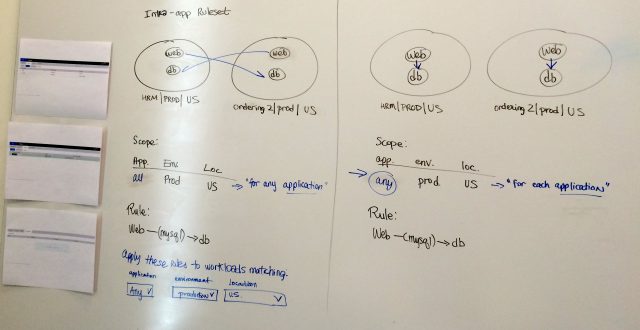 Intra-app Ruleset
web
web
db
db
HRM/PROD/US
ordering 2/prod/US
Scope:
App. Env. Loc.
all Prod US → "for any application"
Rule:
Web —(mysql)→ db
Apply these rules to workloads matching.
application environment
Any production US
web
db
web
db
HRM/PROD/US
ordering 2/prod/US
Scope:
app. env. loc.
any prod US → "for each application"
Rule:
Web —(mysql)→ db